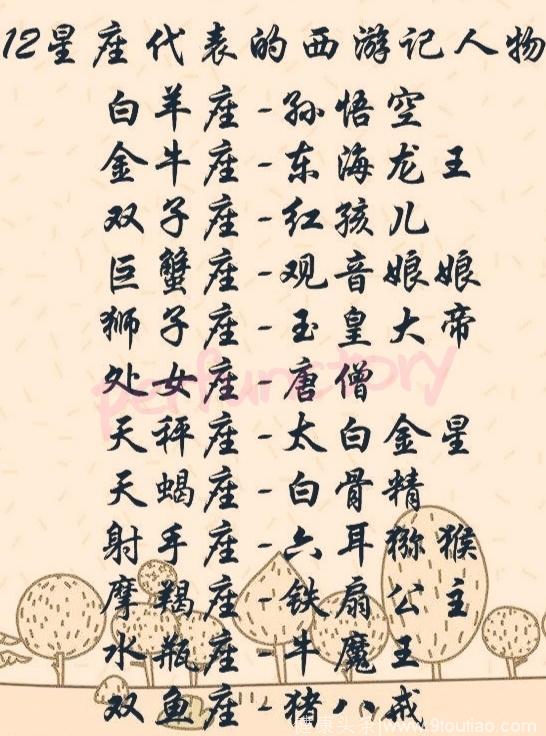 12星座代表的西游记人物
白羊座-孙悟空
金牛座-东海龙王
双子座-红孩儿
巨蟹座-观音娘娘
狮子座-玉皇大帝
处女座-唐僧
perfunctory
天秤座-太白金星
天蝎座-白骨精
射手座-六耳猕猴
摩羯座-铁扇公主
水瓶座-牛魔王
双鱼座-猪八戒
健康头条 www.9toutiao.com